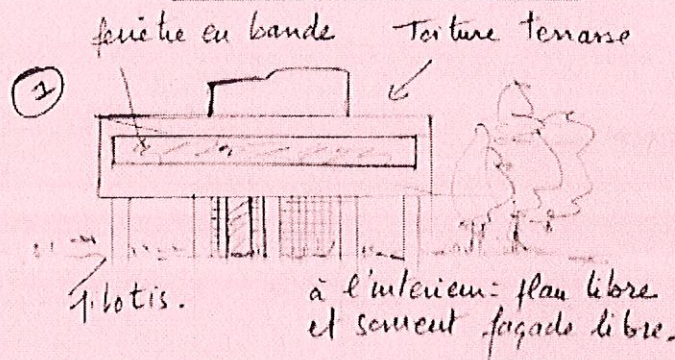 fenêtre en bande
Toiture terrasse
1
Pilotis.
à l'interieur: plan libre
et souvent façade libre.